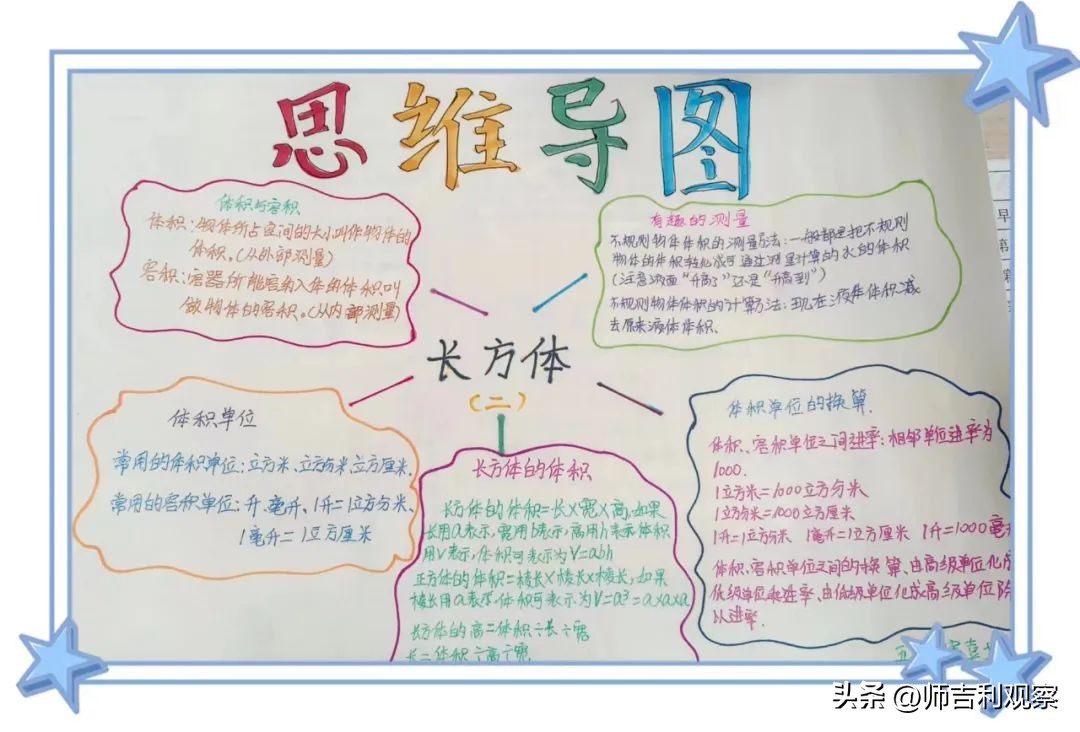 思维导图
体积与容积
体积：物体所占空间的大小叫作物体的
体积。(从外部测量)
容积：容器所能容纳入体的体积叫
做物体的容积。(从内部测量)
有趣的测量
不规则物体体积的测量方法：一般都是把不规则
物体的体积转化成可通过测量计算的水的体积
(注意液面"升高了"还是"升高到")
不规则物体体积的计算方法：现在液体体积减
去原来液体体积、
长方体
(二)
体积单位
常用的体积单位：立方米、立方分米、立方厘米、
常用的容积单位：升、毫升、1升=1立方分米、
1毫升=1立方厘米
长方体的体积
长方体的体积=长×宽×高，如果
长用a表示，宽用b表示，高用h表示体积
用V表示，体积可表示为V=abh
正方体的体积=棱长×棱长×棱长，如果
棱长用a表示，体积可表示为V=a³=a×a×a
长方体的高=体积÷长÷宽
长=体积÷高÷宽
体积单位的换算.
体积、容积单位之间进率：相邻单位进率为
1000.
1立方米=1000立方分米
1立方分米=1000立方厘米
1升=1立方分米 1毫升=1立方厘米 1升=1000毫
体积、容积单位之间的换算、由高级单位化成
低级单位乘进率、由低级单位化成高级单位除
以进率.
头条 @师吉利观察